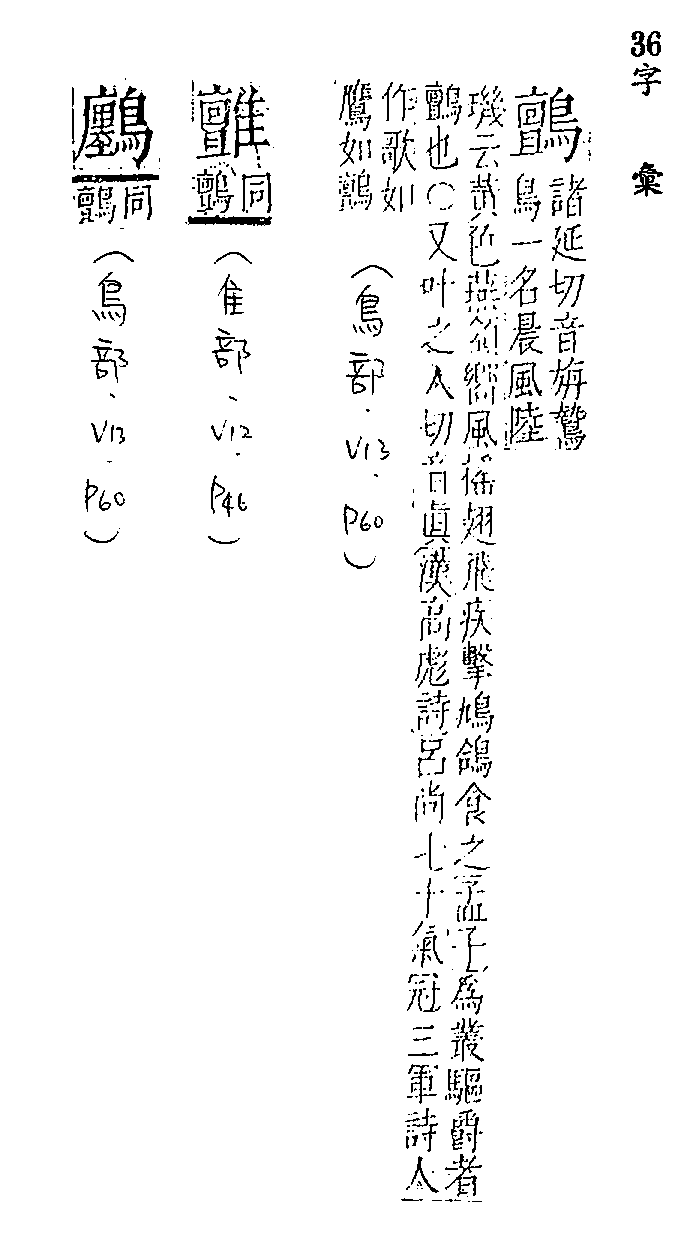 36字 彙
鸇
諸延切音旃鷙
鳥一名晨風陸
璣云黄色燕頷嚮風搖翅飛疾擊鳩鴿食之孟子爲叢驅爵者
鸇也○又叶之人切音眞漢高彪詩呂尚七十氣冠三軍詩人
作歌如
鷹如鸇
(鳥部.V13.P60)
䧴
同
鸇
(隹部、V12.P46)
同
鸇
(鳥部.V13.P60)